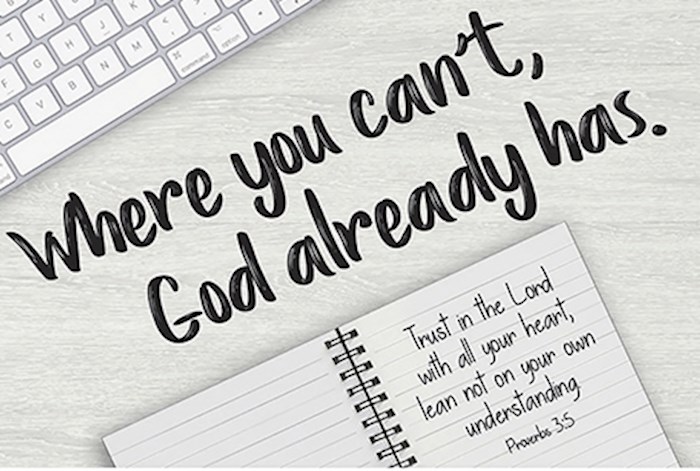 J K L
F G H J K
C V B N M
command
option
Where you can't,
God already has.
Trust in the Lord
with all your heart,
lean not on your own
understanding
Proverbs 3:5